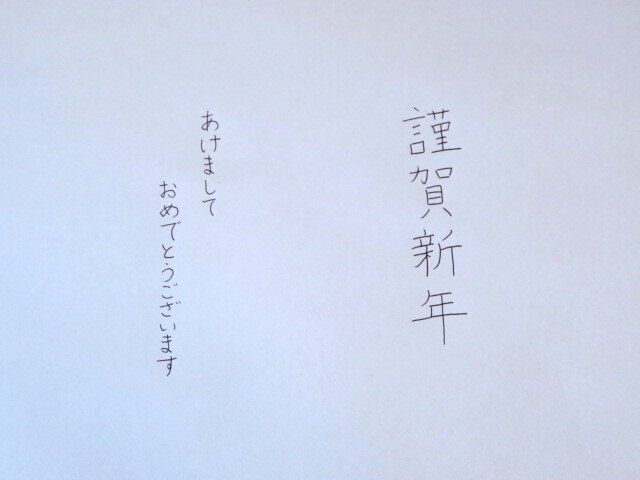 謹賀新年
あけまして
おめでとうございます